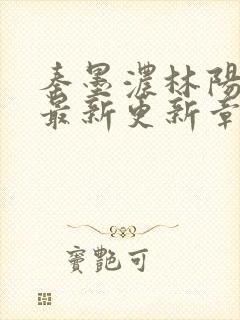 秦墨濃林陽
最新更新章
寶艷可